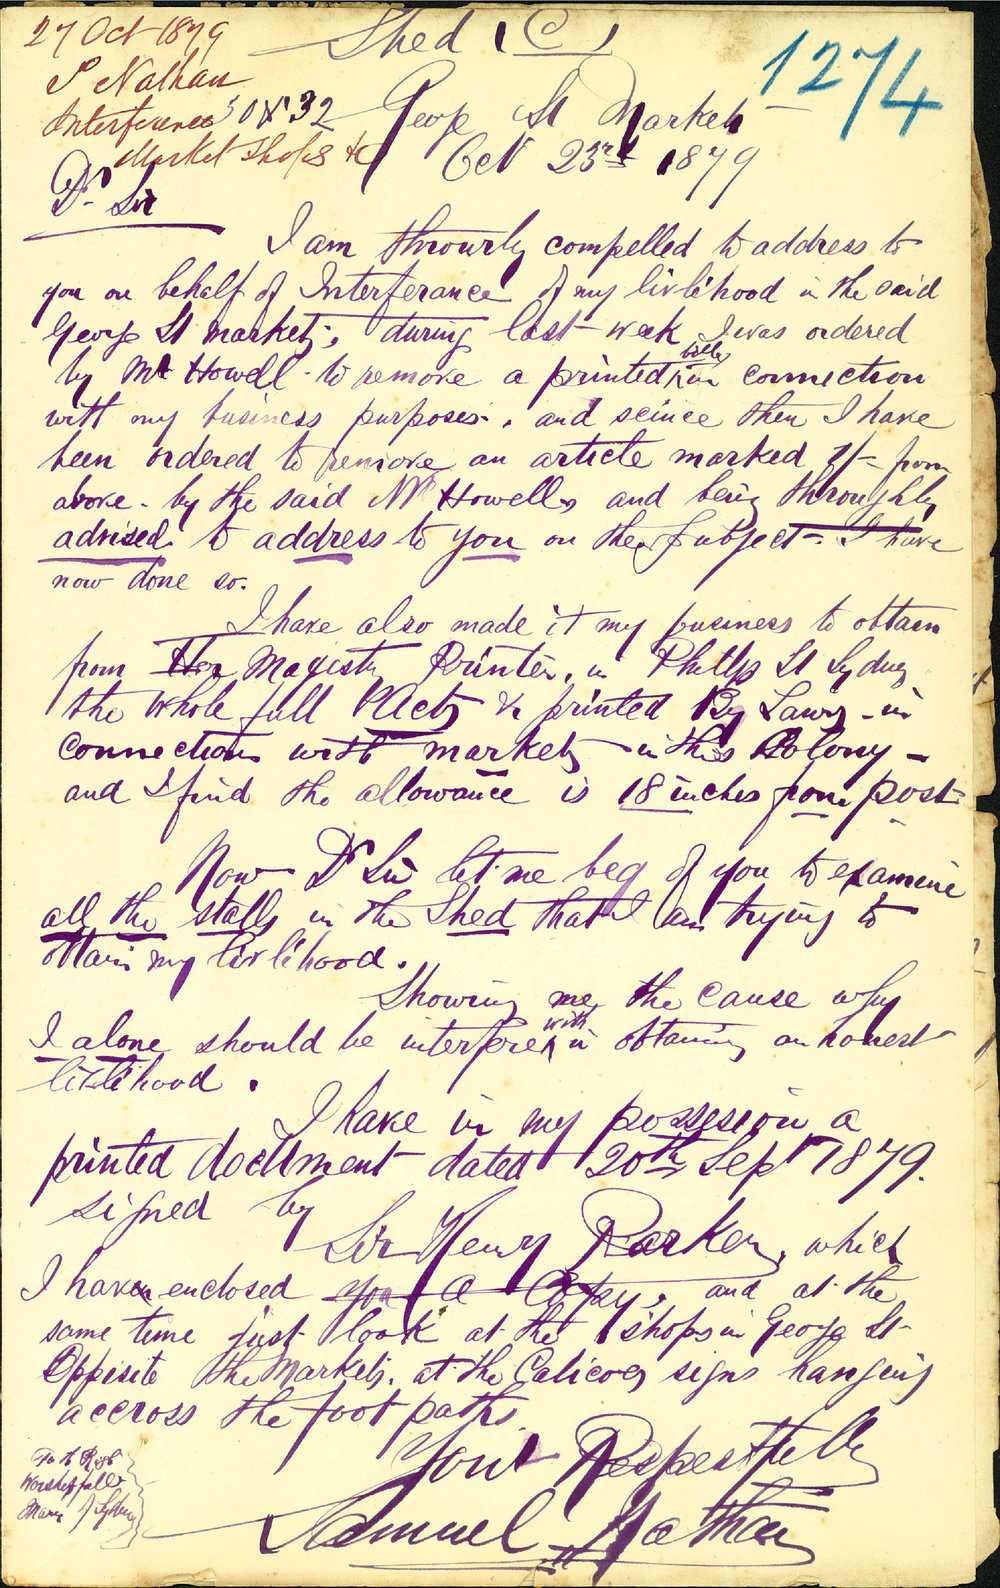 27 Oct 1879
S Nathan
Interference
Market Shops &c
Shed (C)
1274
No 32 George St Markets
Oct 23rd 1879
Dr Sir
I am throurly compelled to address to
you on behalf of Interferance of my livlihood in the said
George St markets; during last week I was ordered
by Mr Howell to remove a printed bills in connection
with my business purposes. and scince then I have
been ordered to remove an article marked 1/- from
above. by the said Mr Howells and being throughly
advised to address to you on the subject - I have
now done so.
I have also made it my business to obtain
from Her Magisty Printer, in Phillip St Sydney
the whole full Acts & printed By Laws - in
connections with markets in this Colony -
and I find the allowance is 18 inches from post
Now Dr Sir let me beg of you to examine
all the stalls in the Shed that I am trying to
obtain my livlihood.
Showing me the cause why
I alone should be interfered with in obtaining an honest
livlihood.
I have in my possession a
printed document dated 20th Sept 1879.
signed by
Sir Henry Parker, which
I have enclosed you a Copy, and at the
same time just look at the shops in George St
Oppisite the Markets. at the Calicoes signs hanging
accross the foot paths.
Your Respectfully
Samuel Nathan
To the Right
Worshipfull
Mayor of Sydney